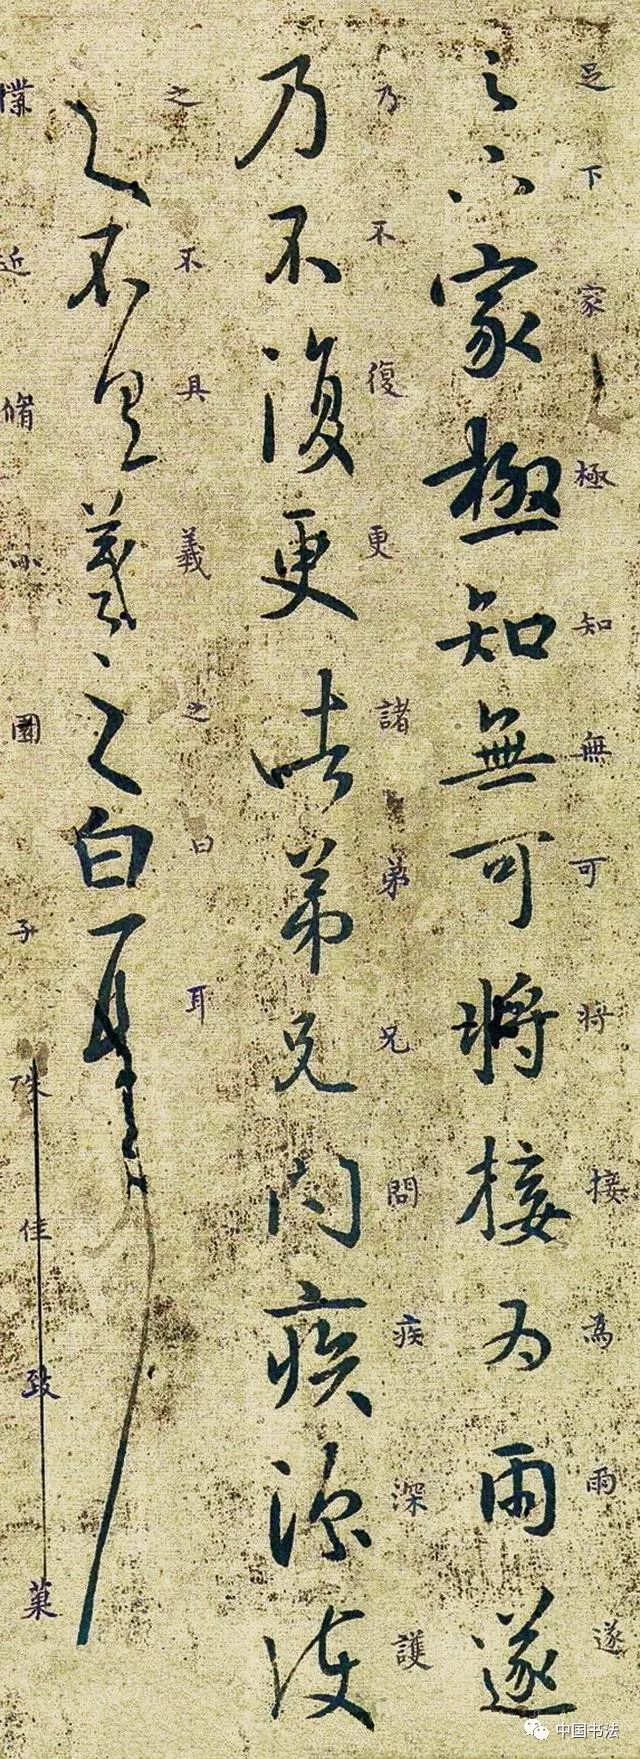 足下家極知無可將接為雨遂
足下家極知無可將接為雨遂
乃不復更諸弟兄問疾深護
乃不復更諸弟兄問疾深護
之不具羲之白耳
之不具羲之白耳
近脩小園子殊佳致菓
中国书法